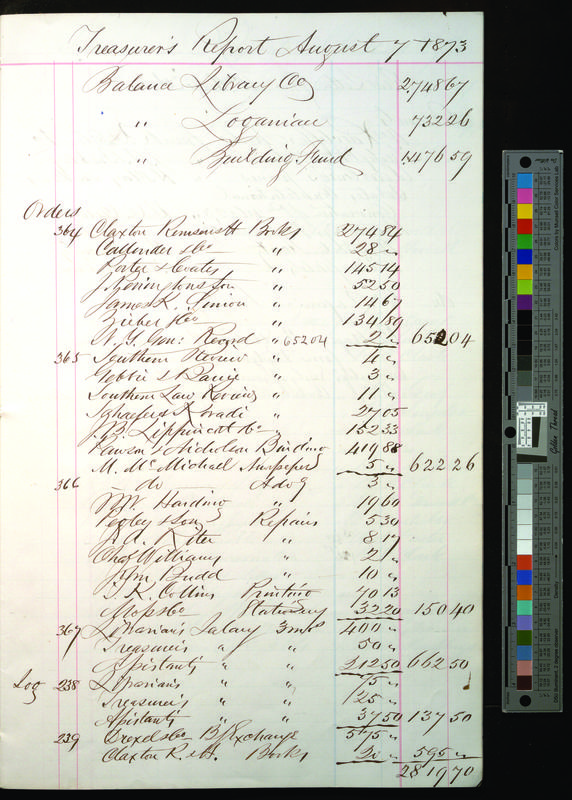 Treasurer's Report August 7 1873
Balance Library Co 2,748 67
" Loganian 732 26
" Building Fund 59
Orders
364 Claxton Remsen & H Books 274 84
Callender & Co " 28 "
Porter & Coates " 145 14
J. Penington & Son " 52 50
James K. Simon " 14 67
Zieber & Co " 134 89
N. Y. Gen: Record " 652 04 2 " 652 04
365 Southern Review " 4 "
Gebbie & Barrie " 3 "
Southern Law Review " 11 "
Schaefer & Koradi " 27 05
J. B. Lippincott & Co " 152 33
Pawson & Nicholson Binding 419 88
M. McMichael Newspapers 5 " 622 26
366 do Advg 3 "
W. W. Harding " 19 60
Pegley & Son Repairs 5 30
" 8 17
Chas Williams " 2 "
Wm. Budd " 10 "
T. K. Collins Printing 70 13
Moss & Co Stationery 32 20 150 40
367 Librarian's Salary 3 mos 400 "
Treasurer's " " 50 "
Assistants " " 212 50 662 50
Log 238 Librarian's " " 75 "
Treasurer's " " 25 "
Assistants " " 37 50 137 50
239 Drexel & Co B/Exchange 575 "
Claxton R. & H. Books 20 " 595 "
2819 70